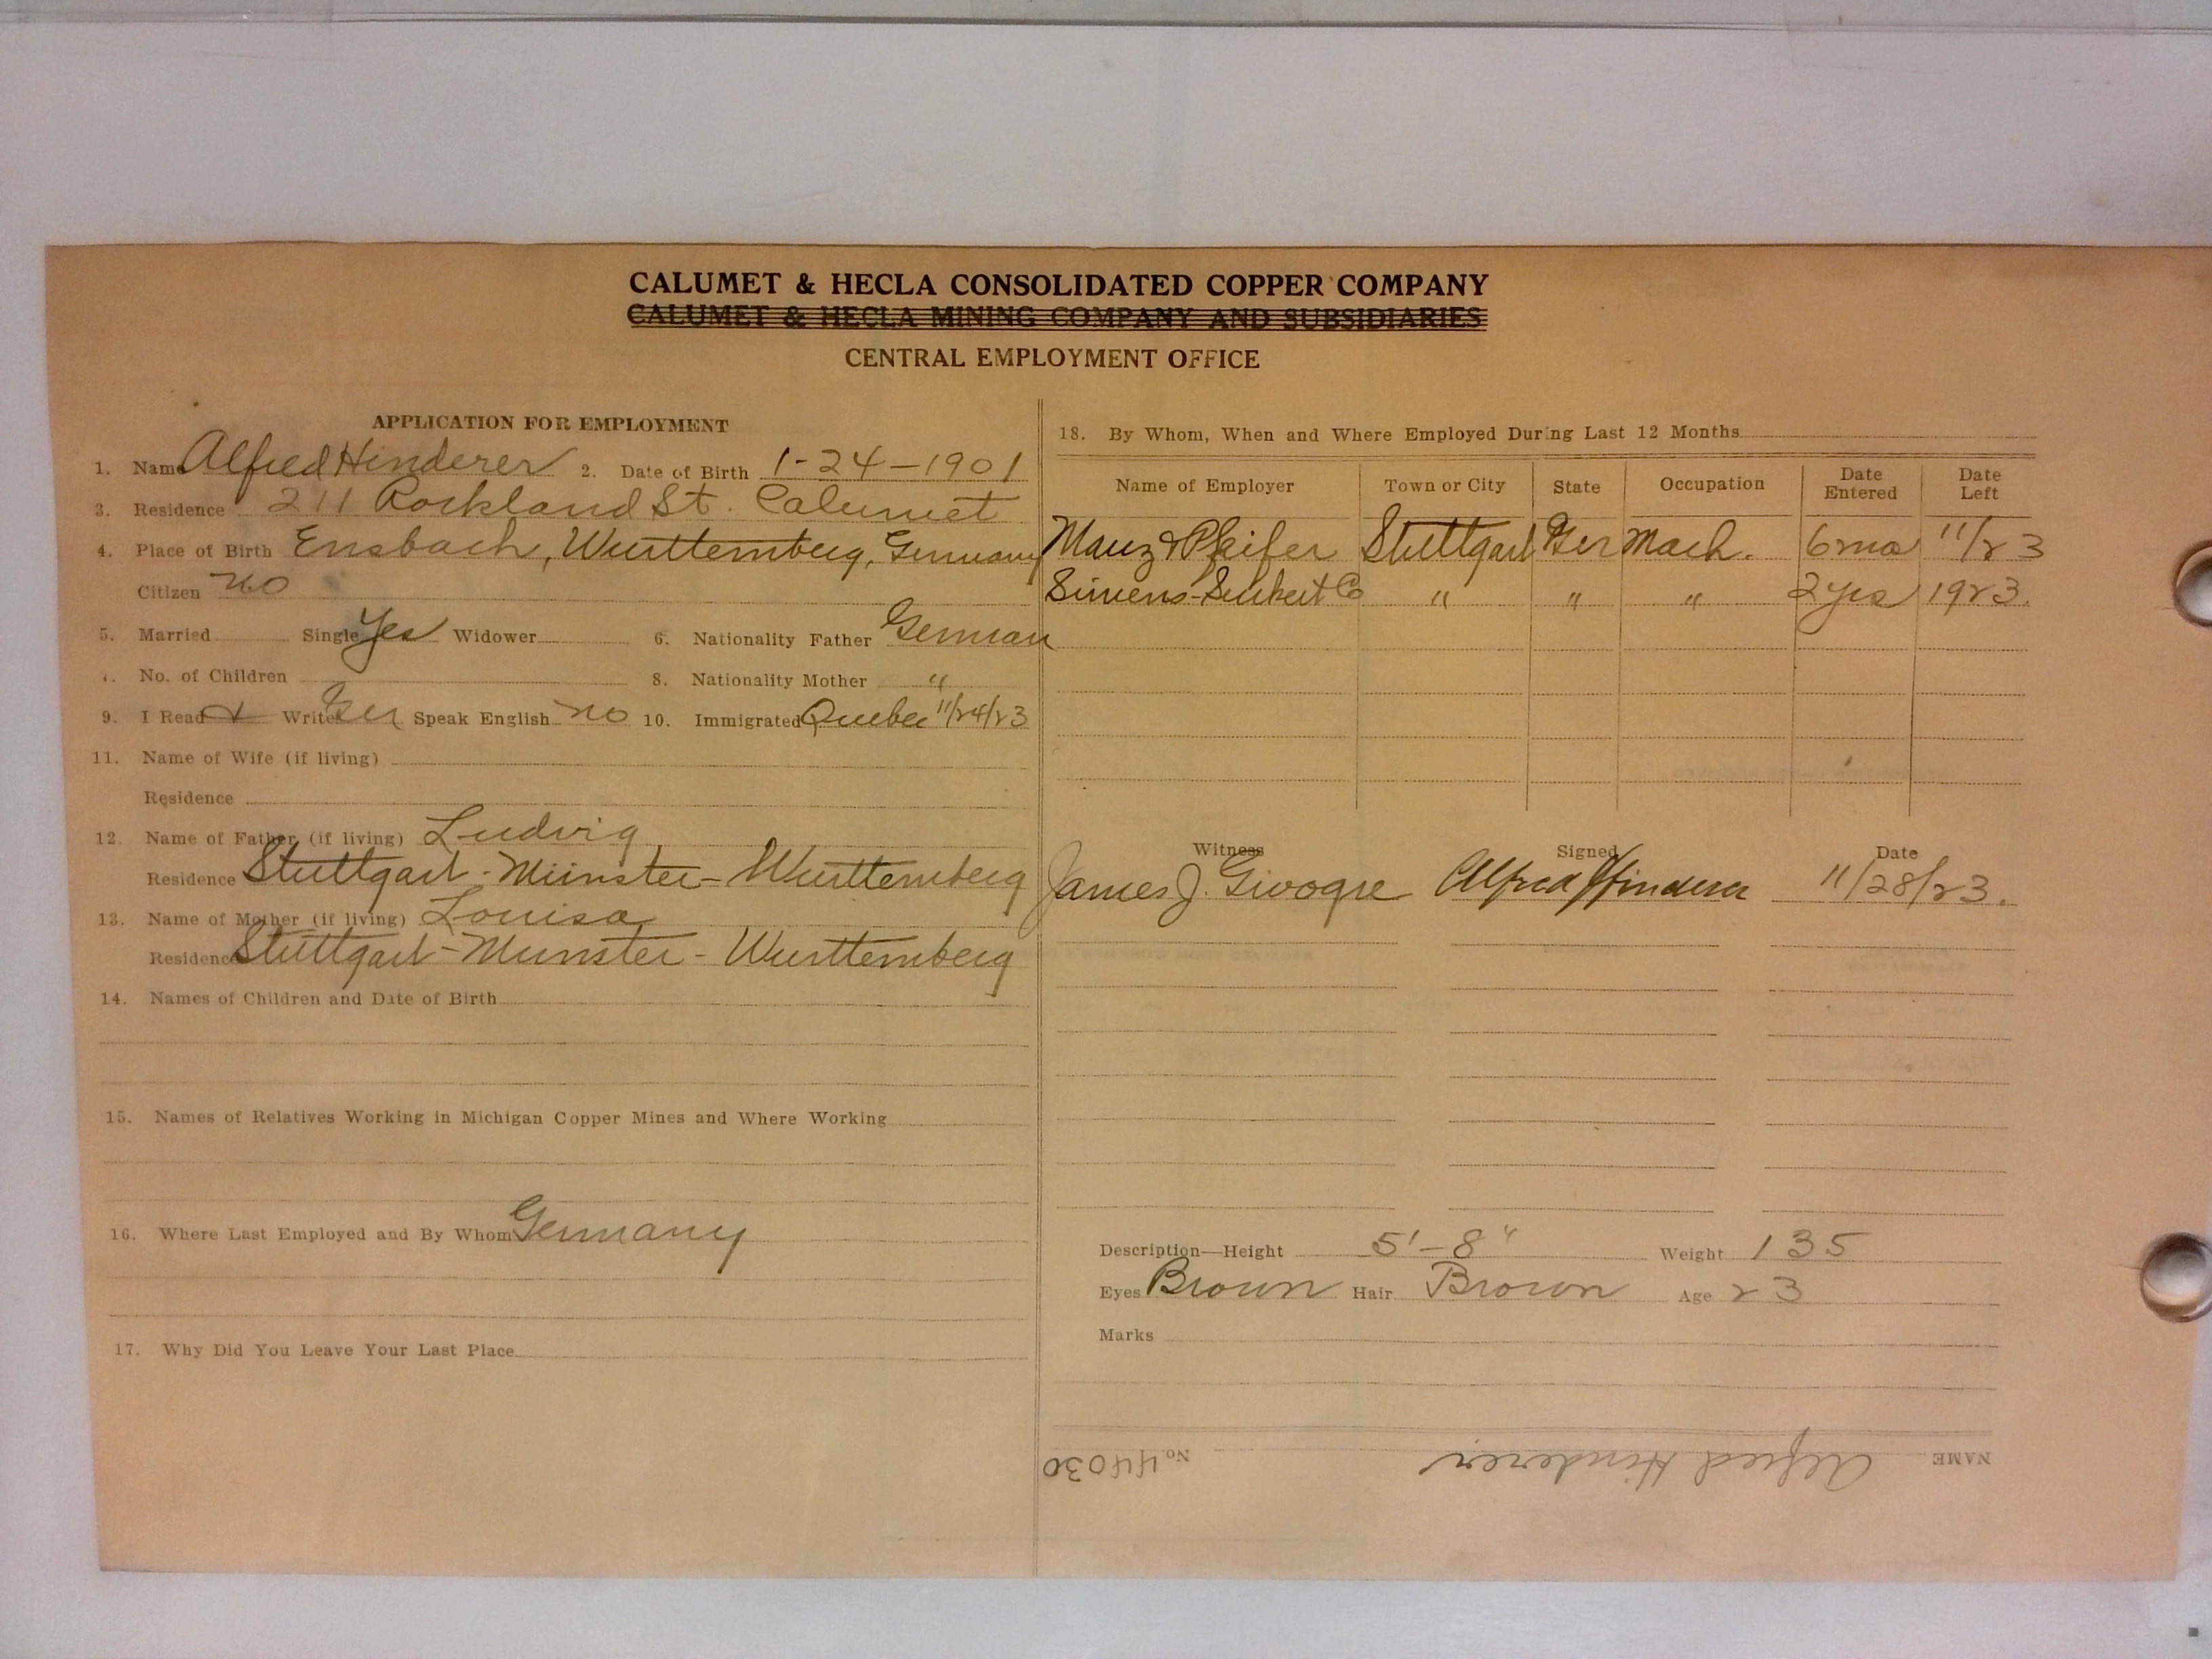 CALUMET & HECLA CONSOLIDATED COPPER COMPANY
CALUMET & HECLA MINING COMPANY AND SUBSIDIARIES
CENTRAL EMPLOYMENT OFFICE
APPLICATION FOR EMPLOYMENT
1. Name Alfred Hinderer 2. Date of Birth 1-24-1901
3. Residence 211 Rockland St. Calumet
4. Place of Birth Ensbach, Wurttemberg, Germany
Citizen no
5. Married Single Yes Widower 6. Nationality Father German
7. No. of Children 8. Nationality Mother "
9. I Read & Write Ger Speak English no 10. Immigrated Quebec 11/24/23
11. Name of Wife (if living)
Residence
12. Name of Father (if living) Ludvig
Residence Stuttgart-Münster-Wurttemberg
13. Name of Mother (if living) Louisa
Residence Stuttgart-Munster-Wurttemberg
14. Names of Children and Date of Birth
15. Names of Relatives Working in Michigan Copper Mines and Where Working
16. Where Last Employed and By Whom Germany
17. Why Did You Leave Your Last Place
18. By Whom, When and Where Employed During Last 12 Months
Name of Employer Town or City State Occupation Date Entered Date Left
Mauz & Pfeifer Stuttgart Ger Mach. 6 mo 11/23
Co " " " 2 yrs 1923.
Witness Signed Date
James J. Alfred Hinderer 11/28/23.
Description—Height 5'-8" Weight 135
Eyes Brown Hair Brown Age 23
Marks
NAME Alfred Hinderer No. 44030